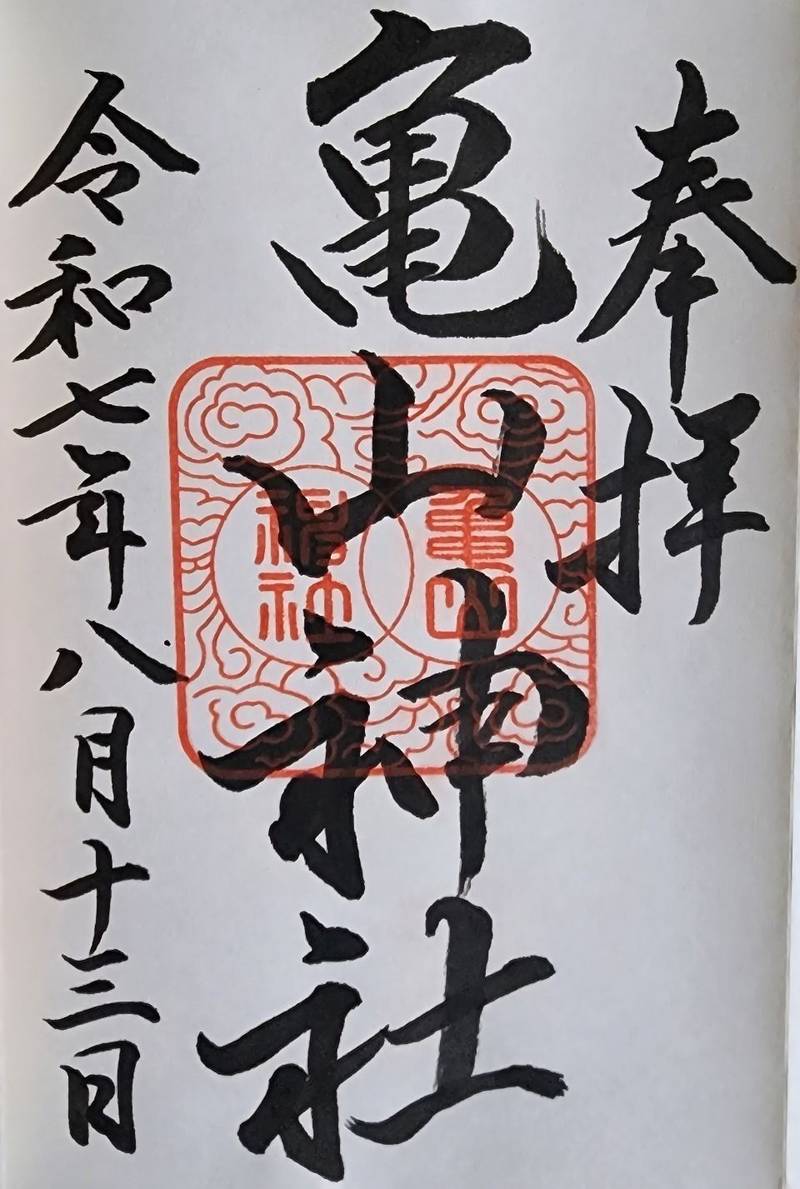 奉拝
亀山神社
亀山
神社
令和七年八月十三日